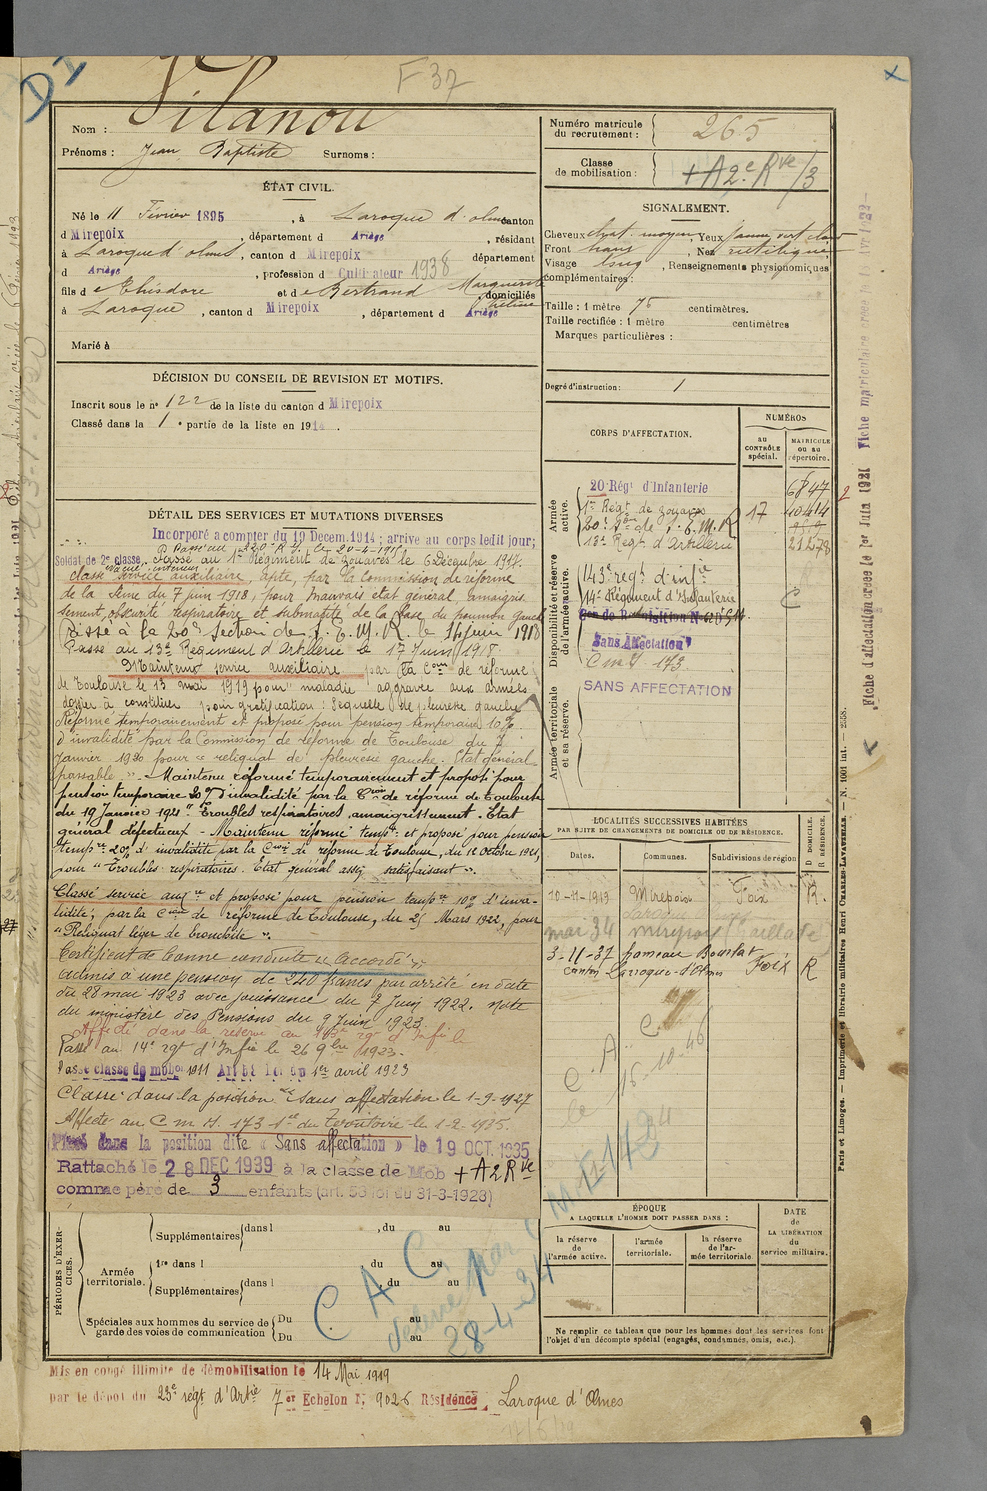 D I
F 37
Nom : Vilanou
Prénoms : Jean Baptiste Surnoms :
ÉTAT CIVIL.
Né le 11 Février 1895, à Laroque d'olmes canton
d Mirepoix, département d Ariège, résidant
à Laroque d'olmes, canton d Mirepoix département
d Ariège, profession d Cultivateur 1938
fils d e et d e Bertrand Marguerite
domiciliés
à Laroque, canton d Mirepoix, département d Ariège
Marié à
DÉCISION DU CONSEIL DE REVISION ET MOTIFS.
Inscrit sous le nº 122 de la liste du canton d Mirepoix
Classé dans la 1e partie de la liste en 1914.
DÉTAIL DES SERVICES ET MUTATIONS DIVERSES
Incorporé a compter du 19 Décem. 1914 ; arrive au corps ledit jour ;
Soldat de 2e classe. Passé au 1er Régiment de zouaves le 6 Décembre 1917.
Classé service auxiliaire, apte, par la Commission de réforme
de la Seine du 7 juin 1918, pour mauvais état général, amaigris
sement, obscurité respiratoire et submatité de la base du poumon gauche
Passé à la 20e Section de S. E. M. R. le 14 juin 1918
Passé au 13e Régiment d'Artillerie le 17 Juin 1918.
Maintenu service auxiliaire par la Com de réforme
de Toulouse le 13 mai 1919 pour maladie aggravée aux armées
dossier à constituer pour gratification : Séquelle de pleurésie gauche
Réformé temporairement et proposé pour pension temporaire 10%
d'invalidité par la Commission de réforme de Toulouse du
Janvier 1920 pour " reliquat de pleurésie gauche. Etat général
passable ". - Maintenu réformé temporairement et proposé pour
pension temporaire 20% d'invalidité par la Con de réforme de Toulouse
du 19 Janvier 1921 " Troubles respiratoires, amaigrissement. Etat
général défectueux - Maintenu réformé tempre et proposé pour pension
tempre 20% d'invalidité par la Con de réforme de Toulouse, du 12 Octobre 1921,
pour " Troubles respiratoires. Etat général assez satisfaisant ".
Classé service auxre et proposé pour pension tempre 10% d'inva-
lidité, par la Con de réforme de Toulouse, du 25 Mars 1922, pour
" Reliquat léger de bronchite ".
Certificat de bonne conduite " Accordé "
admis à une pension de 240 francs par arrêté en date
du 28 mai 1923 avec jouissance du 7 Juin 1922. Note
du ministère des Pensions du 9 Juin 1923
Affecté dans la réserve au 143e rgt d'Infie
Passé au 14e rgt d'Infie le 26 9bre 1923.
Passé classe de mobon 1911 Art 58 Loi du 1er avril 1923
Classé dans la position Sans affectation le 1-9-1927
Affecté au C m A. 173 Son du Territoire le 1-2-1935.
Placé dans la position dite « Sans affectation » le 19 OCT. 1935
Rattaché le 28 DEC 1939 à la classe de Mob + A 2 Rve
comme père de 3 enfants (art. 58 loi du 31-3-1928)
PÉRIODES D'EXERCICES.
Supplémentaires dans l , du au
Armée territoriale.
1re dans l du au
Supplémentaires dans l du au
Spéciales aux hommes du service de garde des voies de communication
Du au
Du au
C A C
28-4-34
Mis en congé illimité de démobilisation le 14 Mai 1919
par le dépôt du 23e régt d'Artie 7er Echelon N° 9026 Résidence, Laroque d'Olmes
Numéro matricule du recrutement : 265
Classe de mobilisation : + A 2e Rve /3
SIGNALEMENT.
Cheveux chat. moyen, Yeux jaune vert clair
Front haus, Nez rectiligne
Visage long, Renseignements physionomiques
complémentaires :
Taille : 1 mètre 75 centimètres.
Taille rectifiée : 1 mètre centimètres
Marques particulières :
Degré d'instruction : 1
CORPS D'AFFECTATION.
NUMÉROS
au CONTRÔLE spécial.
MATRICULE ou au répertoire.
Armée active.
20 Régt d'Infanterie 6847
1er Régt de zouaves 17 40414
20e Son de S. E. M. R
13e Régt d'Artillerie 21278
Disponibilité et réserve de l'armée active.
143e regt d'infie
14e Régiment d'Infanterie C
Sans Affectation
C m A 173
SANS AFFECTATION
Armée territoriale et sa réserve.
LOCALITÉS SUCCESSIVES HABITÉES
PAR SUITE DE CHANGEMENTS DE DOMICILE OU DE RÉSIDENCE.
Dates. Communes. Subdivisions de région
D DOMICILE. R RÉSIDENCE.
10-11-1919 Mirepoix Foix R.
mai 34 Mirepoix
3-11-37 hameau Bourlat
canton Larroque-d'Olmes Foix R
C. A. C.
le 15-10-46
ÉPOQUE
A LAQUELLE L'HOMME DOIT PASSER DANS :
la réserve de l'armée active.
l'armée territoriale.
la réserve de l'armée territoriale.
DATE de LA LIBÉRATION du service militaire.
Ne remplir ce tableau que pour les hommes dont les services font
l'objet d'un décompte spécial (engagés, condamnés, omis, etc.).
Fiche d'affectation créée le 1er Juin 1921
Paris et Limoges. — Imprimerie et librairie militaires Henri CHARLES-LAVAUZELLE. — N. 1001 int. — 2558.